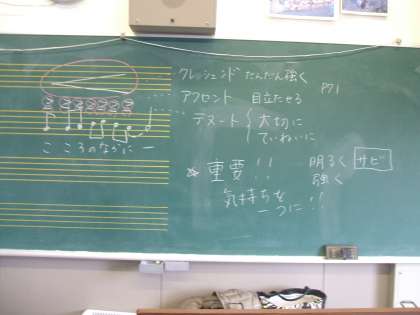 クレッシェンド だんだん強く
アクセント 目立たせる
P71
テヌート 大切に
ていねいに
こころのなかに一
重要!! 明るく サビ
強く
気持ちを
一つに!!